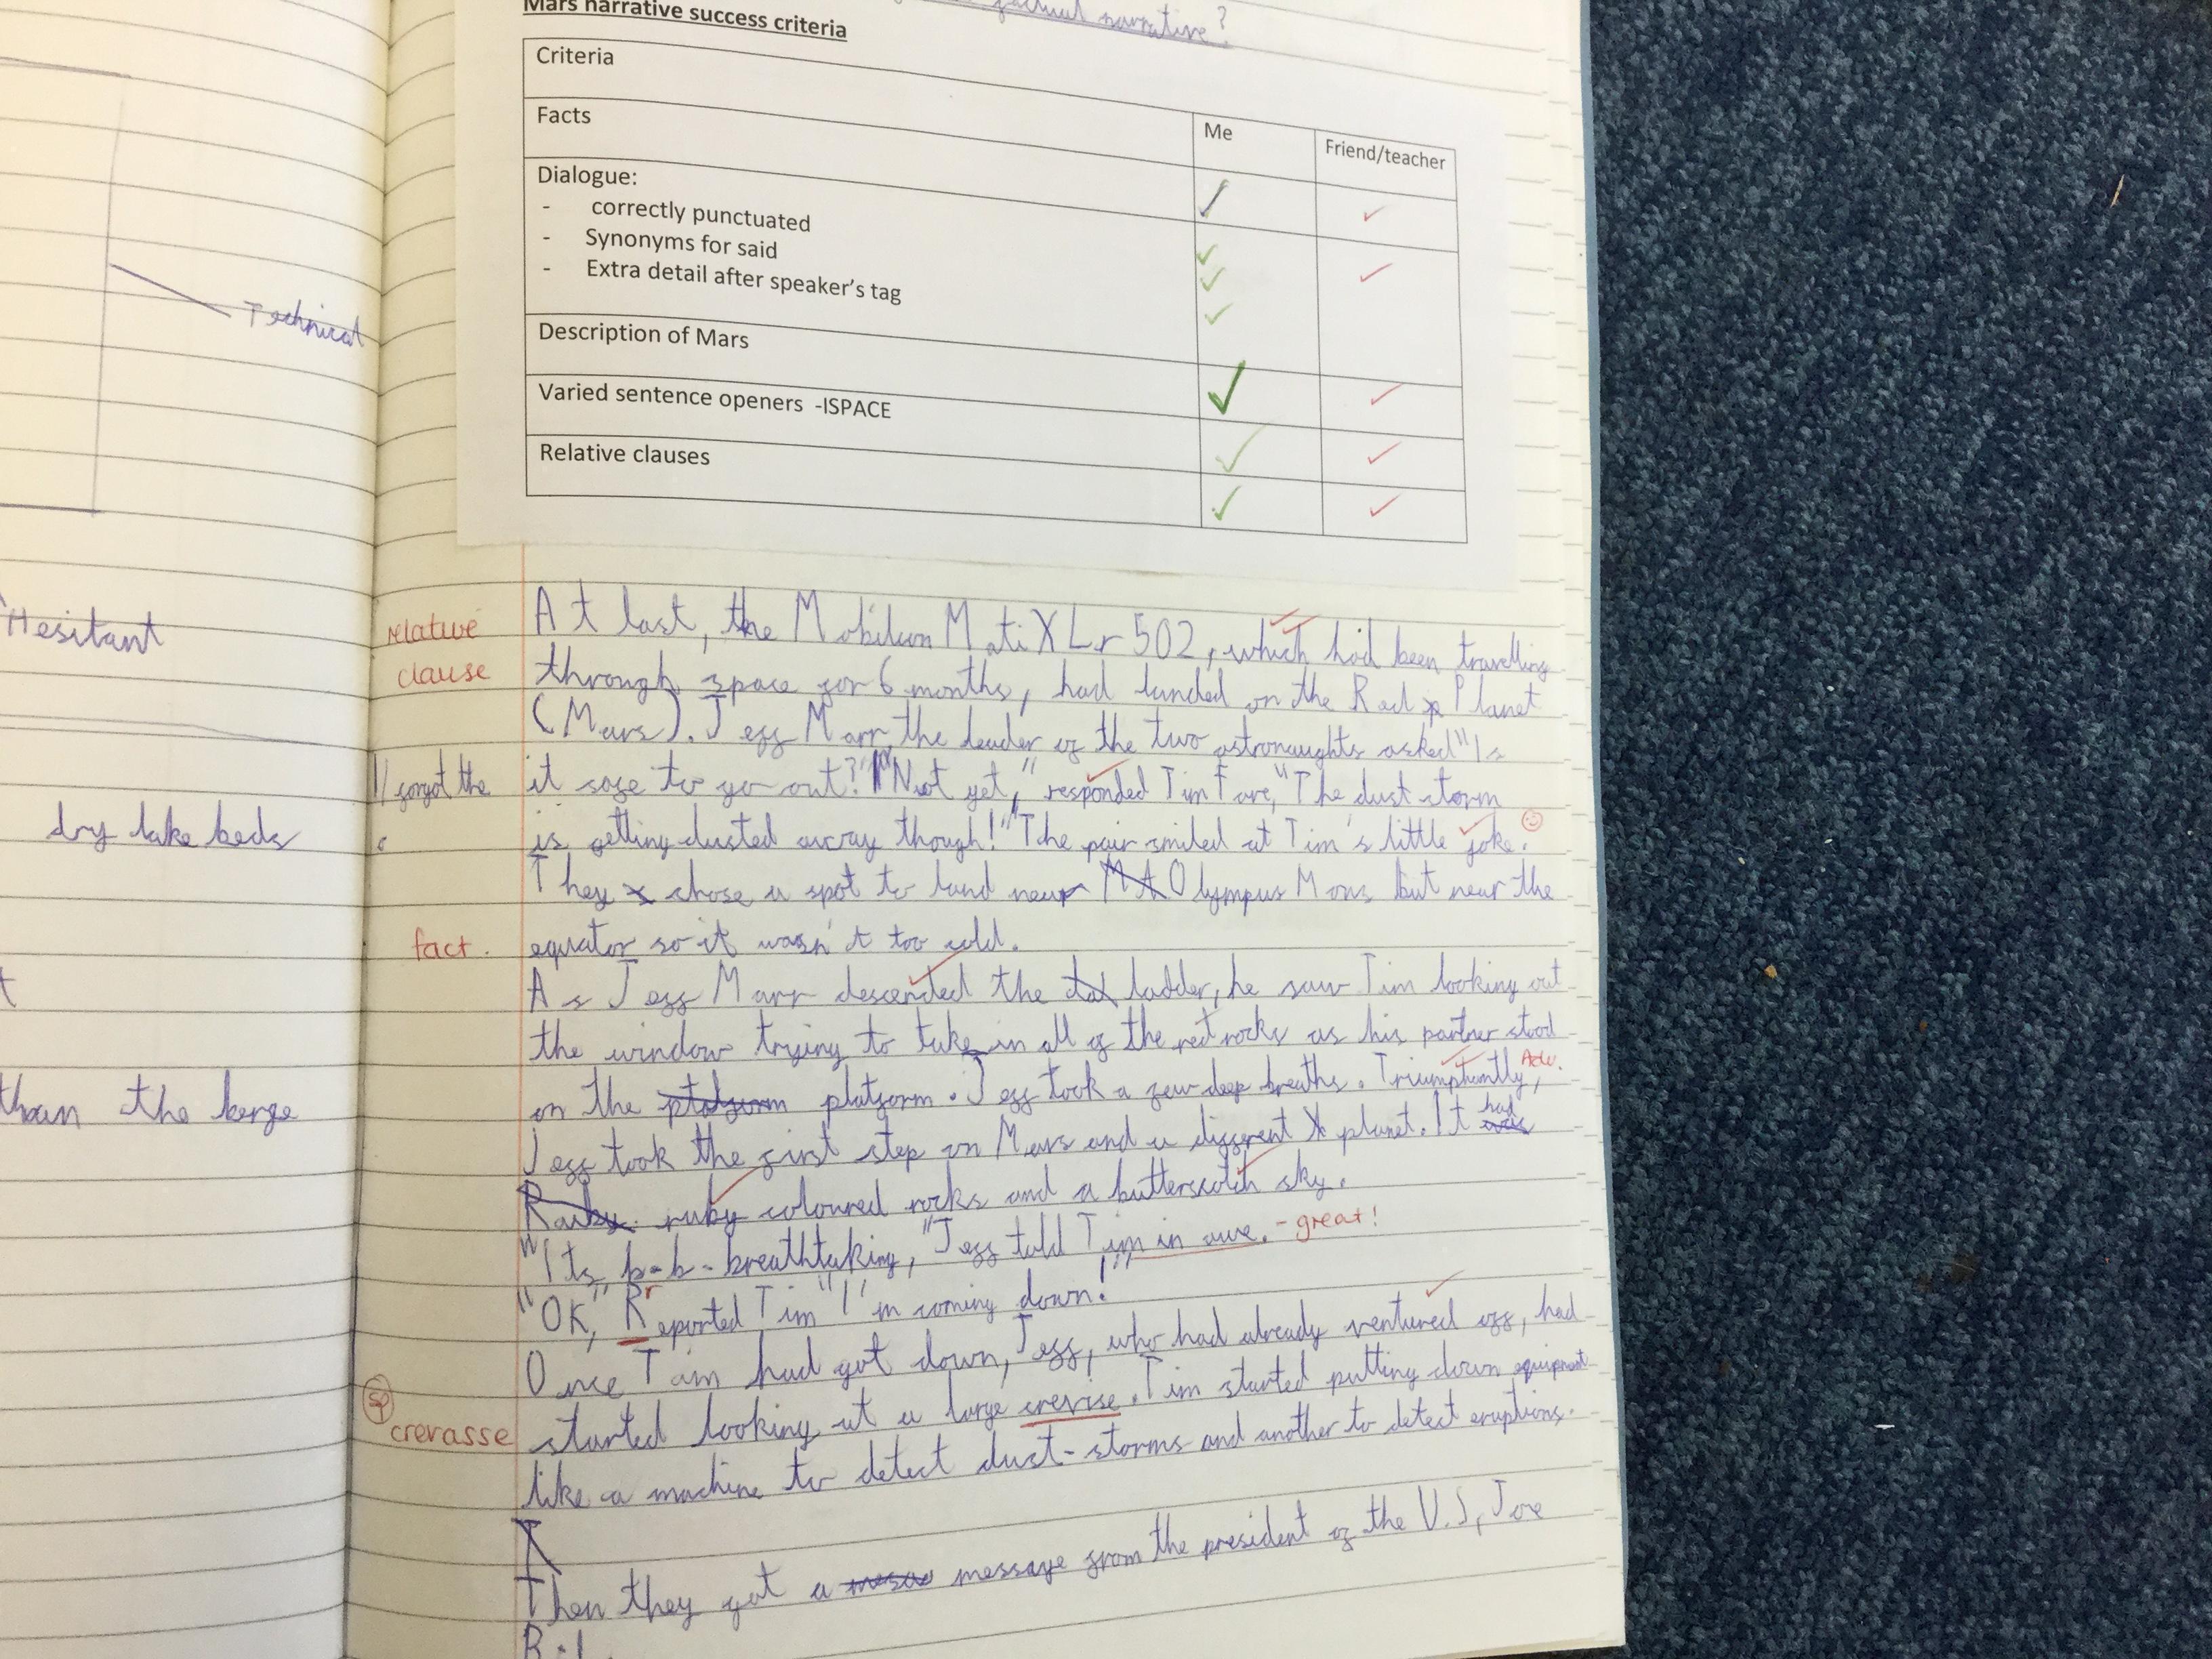 factual narrative?
Mars narrative success criteria
Criteria
Facts
Me
Friend/teacher
Dialogue:
- correctly punctuated
- Synonyms for said
- Extra detail after speaker's tag
Description of Mars
Varied sentence openers -ISPACE
Relative clauses
Technical
Hesitant
dry lake beds
than the
relative
clause
forgot the
fact.
sp
crevasse
At last, the Mobileon MatiXLr 502, which had been travelling
through space for 6 months, had landed on the Red Planet
(Mars). Jeff Marr, the leader of the two astronaughts asked "Is
it safe to go out?" "Not yet," responded Tim Fare, "The dust storm
is getting dusted away though!" The pair smiled at Tim's little joke.
They chose a spot to land near Olympus Mons but near the
equator so it wasn't too cold.
As Jeff Marr descended the ladder, he saw Tim looking out
the window trying to take in all of the red rocks as his partner stood
on the platform. Jeff took a few deep breaths. Triumphantly, Adv.
Jeff took the first step on Mars and a different planet. It had
ruby coloured rocks and a butterscotch sky.
"Its b-b-breathtaking," Jeff told Tim in awe. - great!
"OK," Reported Tim "I'm coming down!"
Once Tim had got down, Jeff, who had already ventured off, had
started looking at a large crevise. Tim started putting down equipment
like a machine to detect dust-storms and another to detect eruptions.
Then they got a message from the president of the U.S, Joe